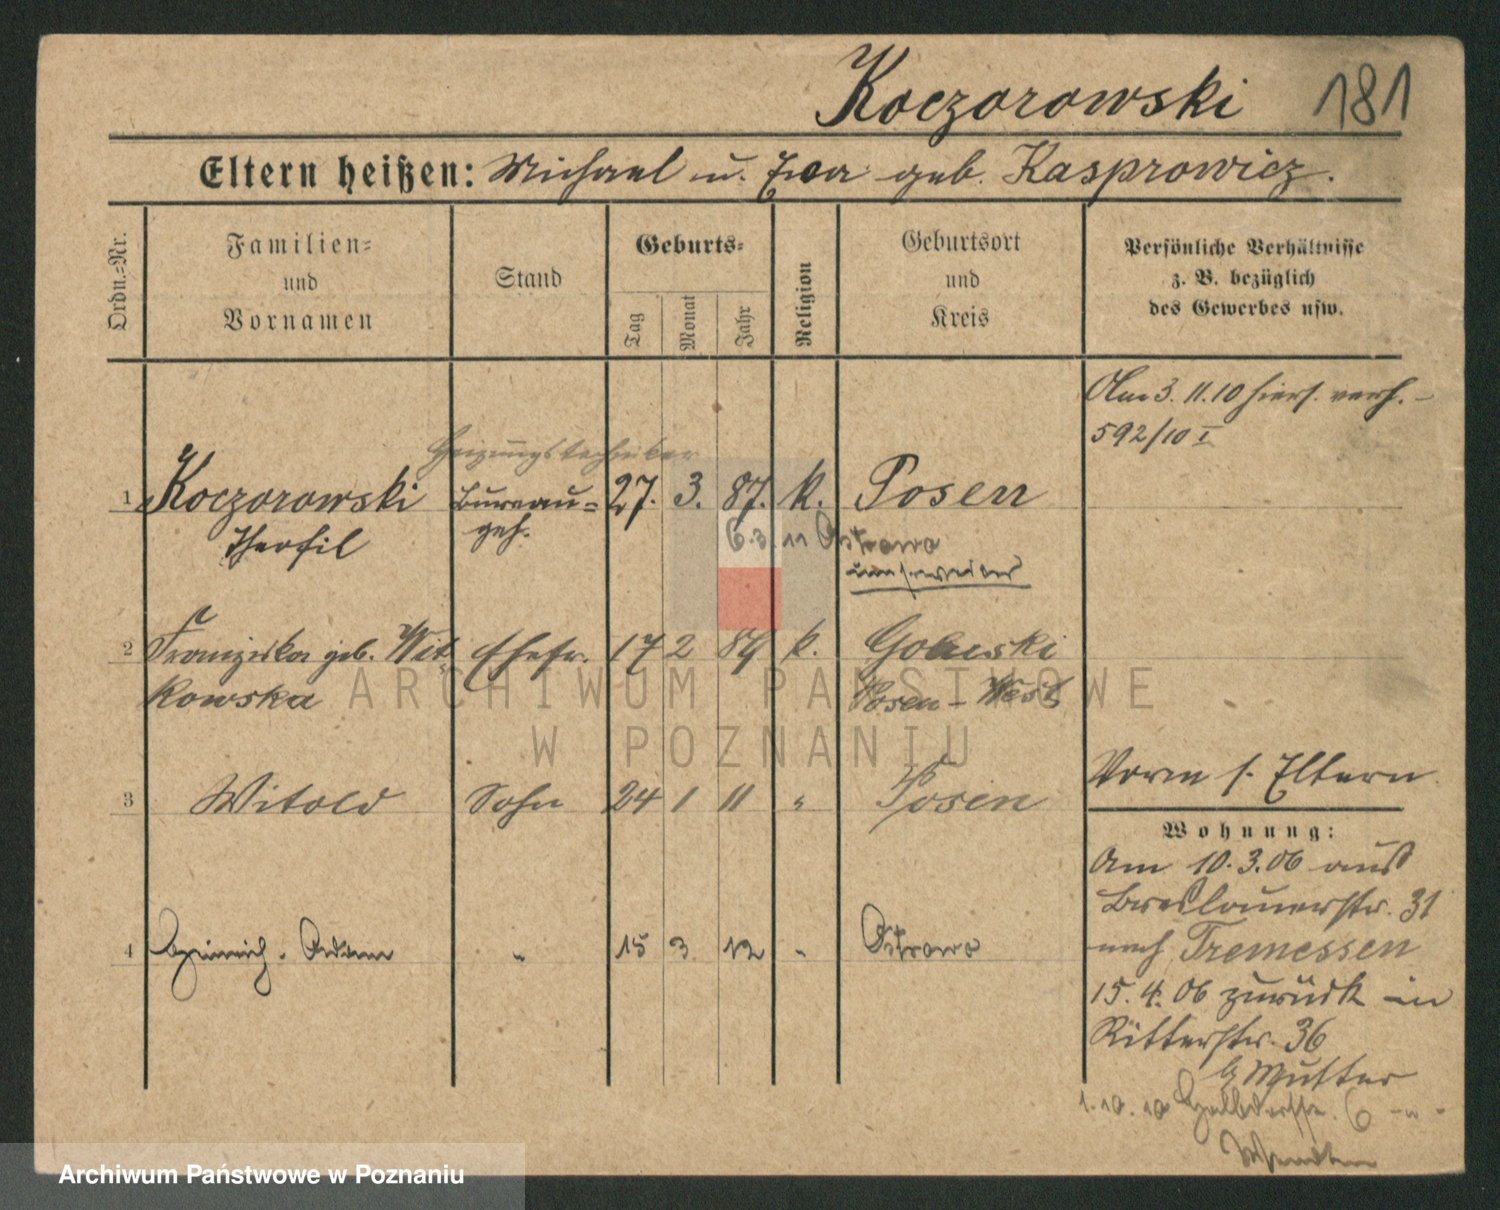 Koczorowski 181
Eltern heißen: Michael u. Eva geb. Kasprowicz.
Ordn.=Nr.
Familien=
und
Vornamen
Stand
Geburts=
Tag
Monat
Jahr
Religion
Geburtsort
und
Kreis
Persönliche Verhältnisse
z. B. bezüglich
des Gewerbes usw.
Am 3. 11. 10 hiers. verh. –
592/10 I
Heizungstechniker
1 Koczorowski Bureau= 27. 3. 87. k. Posen
Theofil geh.
6.3.11 Ostrowo
2 Franziska geb. Wit Ehefr. 17 2 89 k.
kowska Posen – West
3 Witold Sohn 24 1 11 " Posen
Vorm s. Eltern.
Wohnung:
Am 10. 3. 06 aus
Breslauerstr. 31
nach Tremessen
4 Heinrich Adam " 15 3 12 " Ostrowo
15. 4. 06 zurück in
Ritterstr. 36
b Mutter
1. 10. 10 6
ARCHIWUM PAŃSTWOWE
W POZNANIU
Archiwum Państwowe w Poznaniu